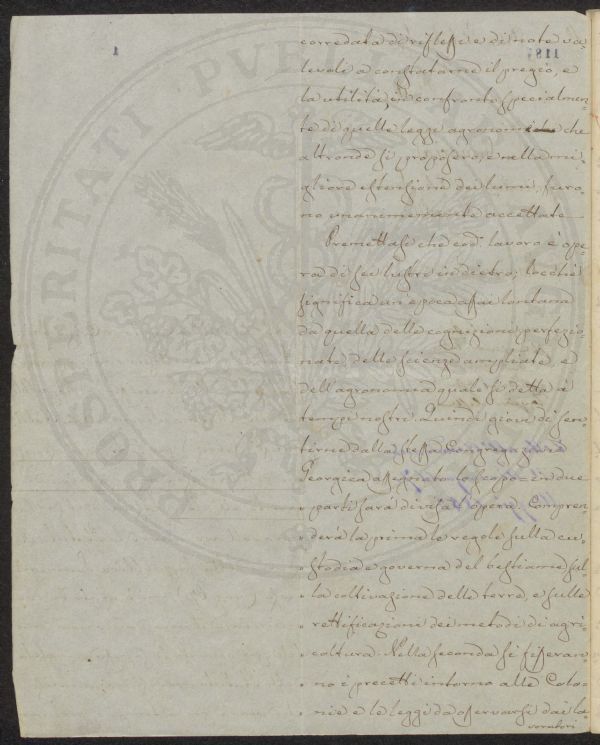 1
118
PROSPERITATI PUBLICAE
corredata di riflessi e di note va-
levoli a constatarne il pregio, e
la utilità, in confronto specialmen-
te di quelle leggi agronomiche che
altronde si proposero, e nella mi-
gliore estensione dei lumi, furo-
no unanimemente accettate
Premettasi che cod. lavoro è ope-
ra di sei lustri indietro; locchè
significa un epoca assai lontana
da quella delle cognizioni perfezio-
nate, delle scienze ampliate, e
dell'agronomia quale si detta a
tempi nostri. Quindi giova di sen-
tirne dalla stessa Congregazione
Georgica assegnato lo scopo = in due
" parti sarà divisa l'opera. Compren-
" derà la prima le regole sulla cu-
" stodia e governo del bestiame sul-
" la coltivazione delle terre, e sulle
" rettificazione dei metodi di agri-
" coltura. Nella seconda si fisseran-
" no i precetti intorno alle Colo-
" nie e le leggi da osservarsi dai la-
voratori